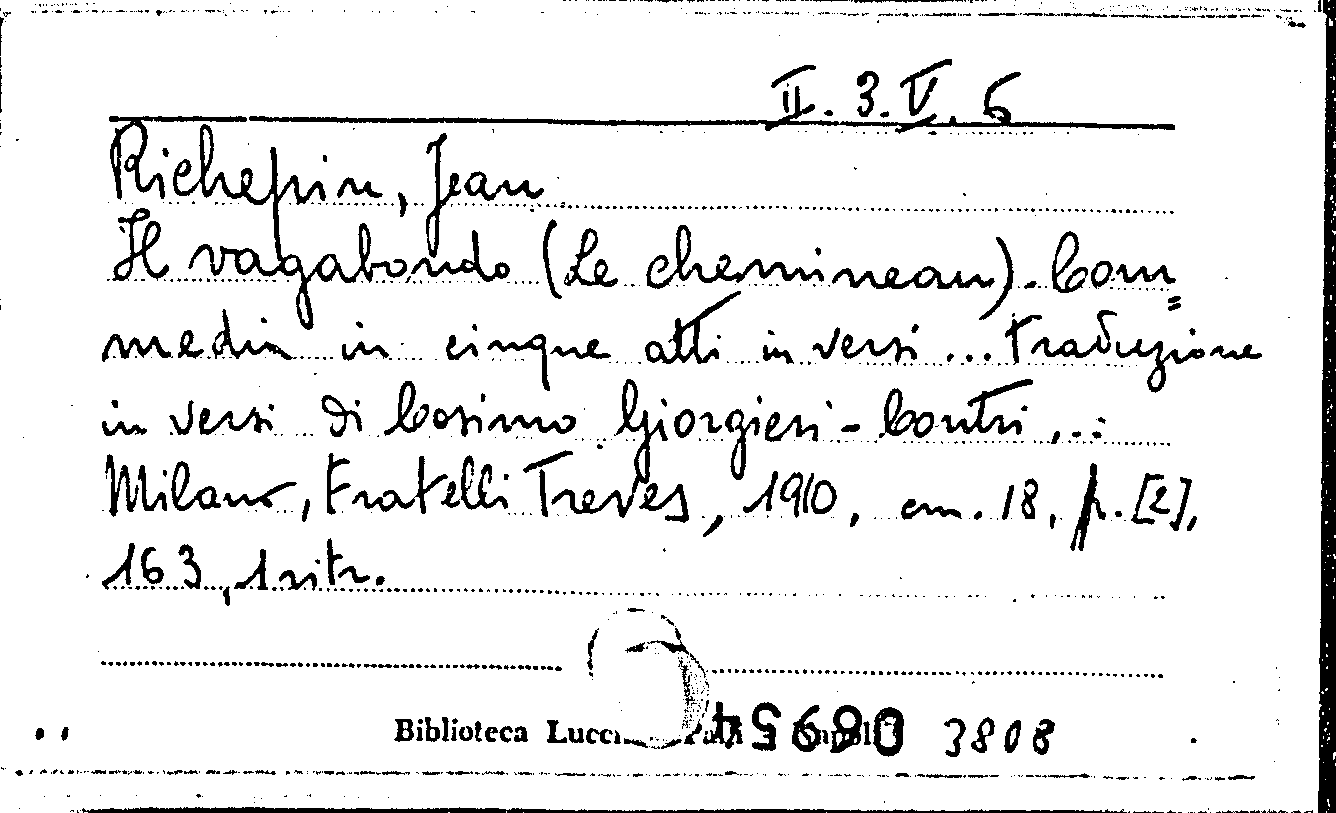 II. 3. V. 6
Richepin, Jean
Il vagabondo (Le chemineau). Com=
media in cinque atti in versi ... Traduzione
in versi di Cosimo Giorgieri-Contri ...
Milano, Fratelli Treves, 1910, cm. 18, p. [2],
163, 1 ritr.
Biblioteca 3808